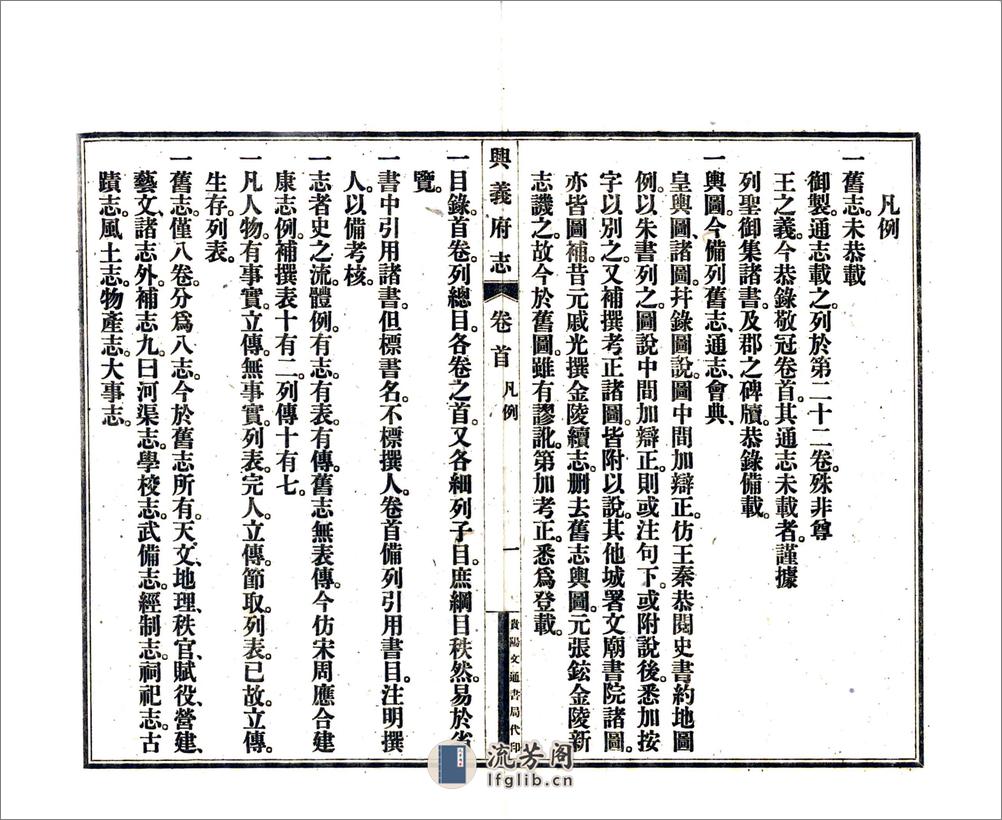 凡例
一舊志未恭載
御製。通志載之。列於第二十二卷。殊非尊
王之義。今恭錄敬冠卷首。其通志未載者。謹據
列聖御集諸書。及郡之碑牘。恭錄備載。
一輿圖。今備列舊志、通志、會典、
皇輿圖、諸圖。幷錄圖說。圖中間加辯正。仿王秦恭閱史書約地圖
例。以朱書列之。圖說中間加辯正。則或注句下。或附說後。悉加按
字以別之。又補撰考正諸圖。皆附以說。其他城署文廟書院諸圖。
亦皆圖補。昔元戚光撰金陵續志。刪去舊志輿圖。元張鉉金陵新
志譏之。故今於舊圖。雖有謬訛。第加考正。悉爲登載。
興義府志
卷首
凡例
一
貴陽文通書局代印
一目錄。首卷。列總目。各卷之首。又各細列子目。庶綱目秩然。易於省
覽。
一書中引用諸書。但標書名。不標撰人。卷首備列引用書目。注明撰
人。以備考核。
一志者史之流。體例。有志。有表。有傳。舊志無表傳。今仿宋周應合建
康志例。補撰表十有二。列傳十有七。
一凡人物。有事實。立傳。無事實。列表。完人。立傳。節取。列表。已故。立傳。
生存。列表。
一舊志。僅八卷。分爲八志。今於舊志所有。天文、地理、秩官、賦役、營建、
藝文、諸志外。補志九。曰河渠志。學校志。武備志。經制志。祠祀志。古
蹟志。風土志。物產志。大事志。
流芳阁
lfglib.cn